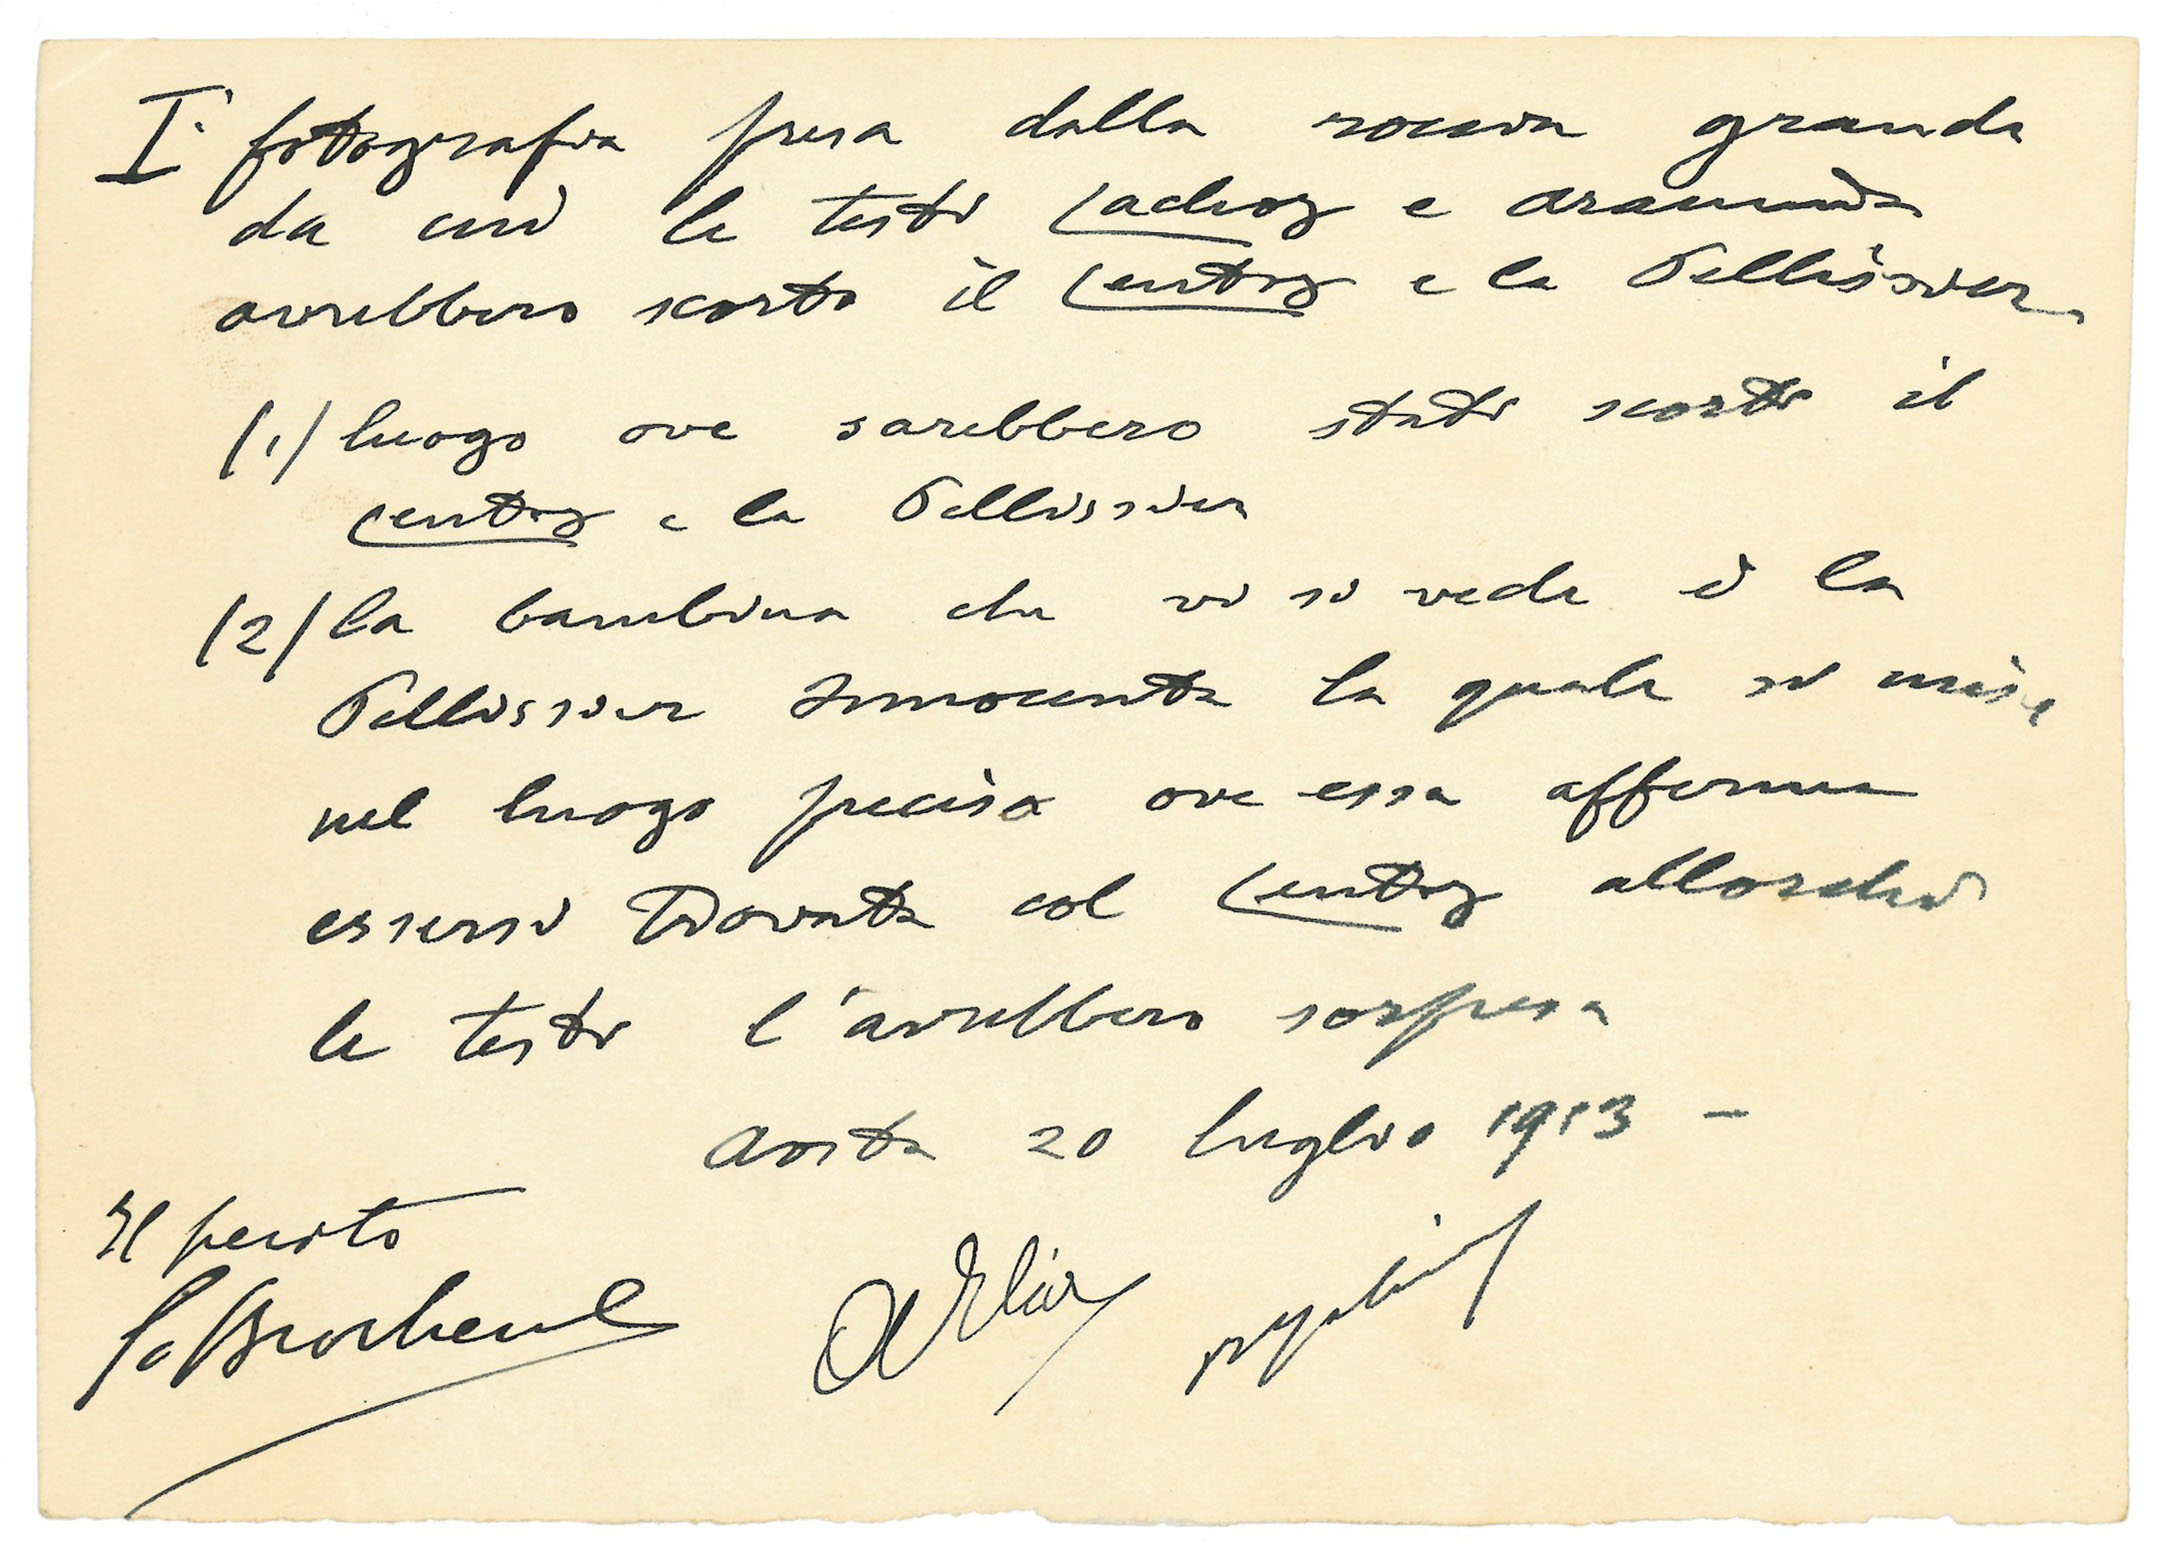 I° fotografia presa dalla roccia grande
da cui le testi Cachoz e
avrebbero scorto il Centoz e la Pellissier
(1) luogo ove sarebbero stati scorti il
Centoz e la Pellissier
(2) la bambina che vi si vede è la
Pellissier Innocenta la quale si mise
nel luogo preciso ove essa afferma
essersi trovata col Centoz allorché
le testi l'avrebbero sorpresa
Aosta 20 luglio 1913 –
Il perito